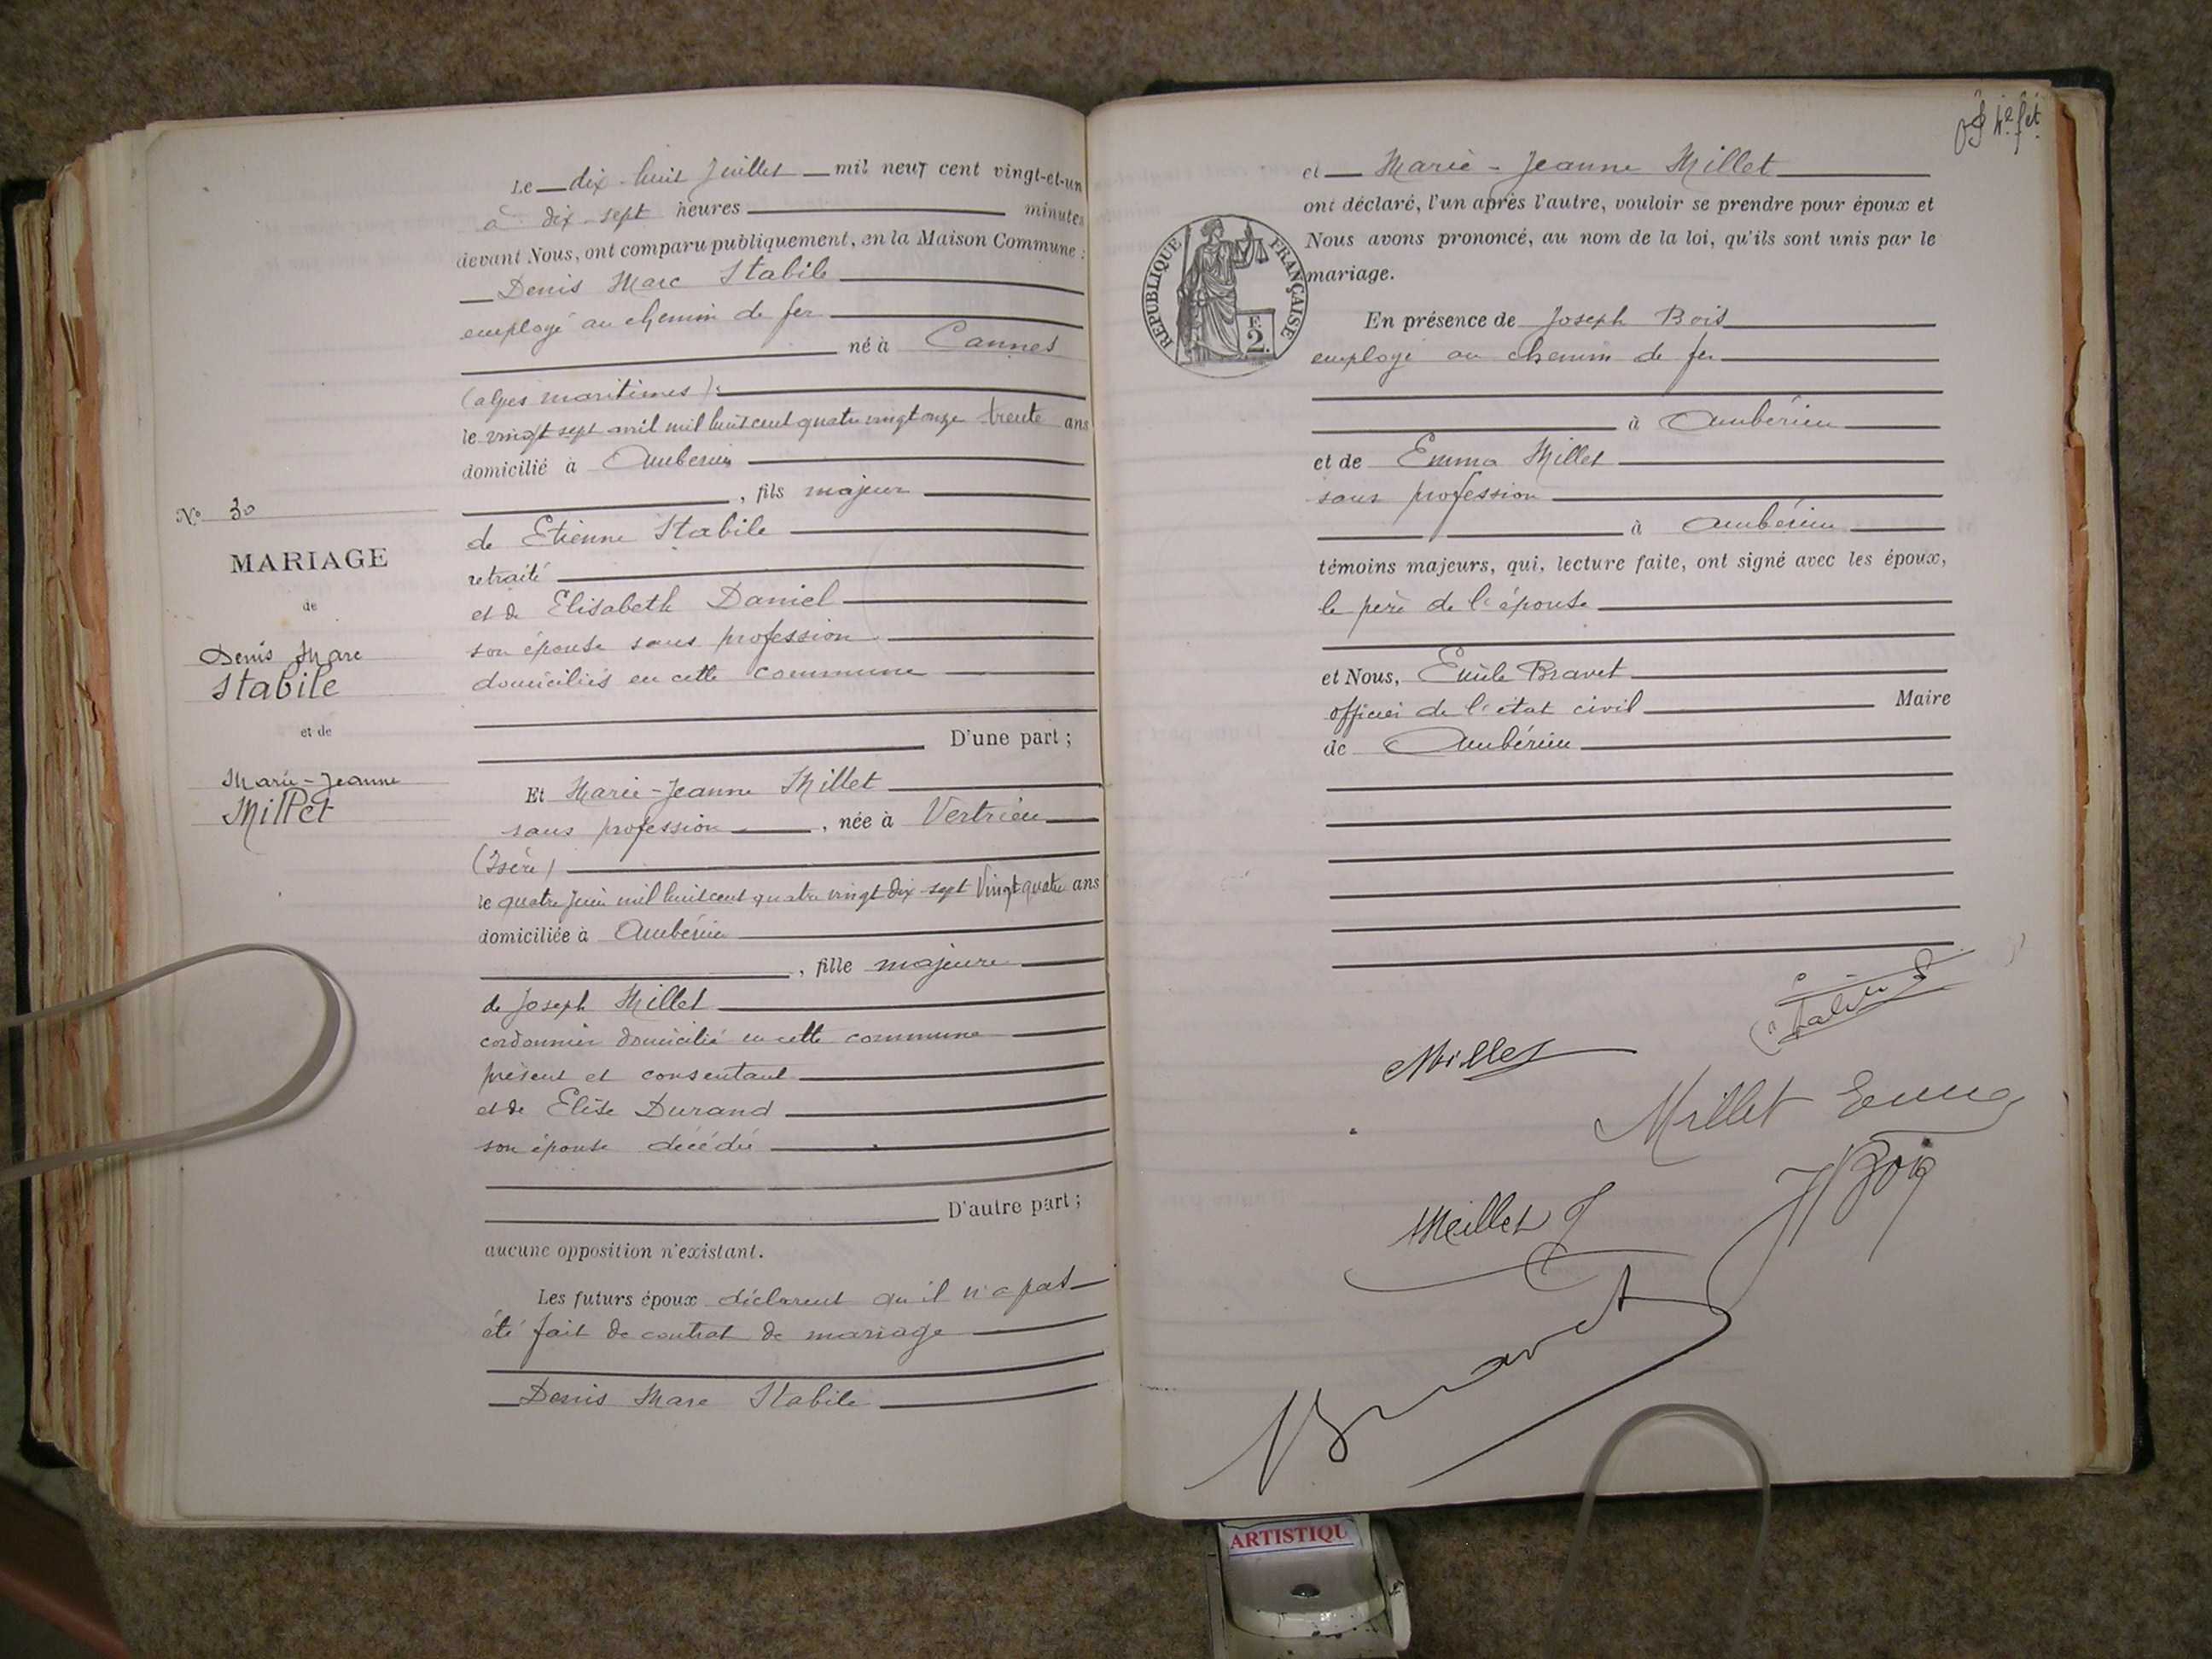 Le dix-huit Juillet mil neuf cent vingt-et-un
à dix-sept heures minutes
devant Nous, ont comparu publiquement, en la Maison Commune :
Denis Marc Stabile
employé au chemin de fer
né à Cannes
(alpes maritimes)
le vingt sept avril mil huit cent quatre vingt onze trente ans
domicilié à Ambérieu
, fils majeur
de Etienne Stabile
retraité
et de Elisabeth Daniel
son épouse sans profession
domiciliés en cette commune
D'une part ;
N° 30
MARIAGE
de
Denis Marc
Stabile
et de
Marie-Jeanne
Millet
Et Marie-Jeanne Millet
sans profession , née à Vertrieu
(Isère)
le quatre juin mil huit cent quatre vingt dix-sept Vingt quatre ans
domiciliée à Ambérieu
, fille majeure
de Joseph Millet
cordonnier domicilié en cette commune
présent et consentant
et de Elise Durand
son épouse décédée
D'autre part ;
aucune opposition n'existant.
Les futurs époux déclarent qu'il n'a pas
été fait de contrat de mariage
Denis Marc Stabile
et Marie-Jeanne Millet
ont déclaré, l'un après l'autre, vouloir se prendre pour époux et
Nous avons prononcé, au nom de la loi, qu'ils sont unis par le
mariage.
REPUBLIQUE FRANÇAISE
E
2.
En présence de Joseph Bois
employé au chemin de fer
à Ambérieu
et de Emma Millet
sans profession
à Ambérieu
témoins majeurs, qui, lecture faite, ont signé avec les époux,
le père de l'épouse
et Nous, Emile Bravet
officier de l'état civil Maire
de Ambérieu
Millet
Millet Emma
J Bois
Meillet J
Bravet
ARTISTIQU